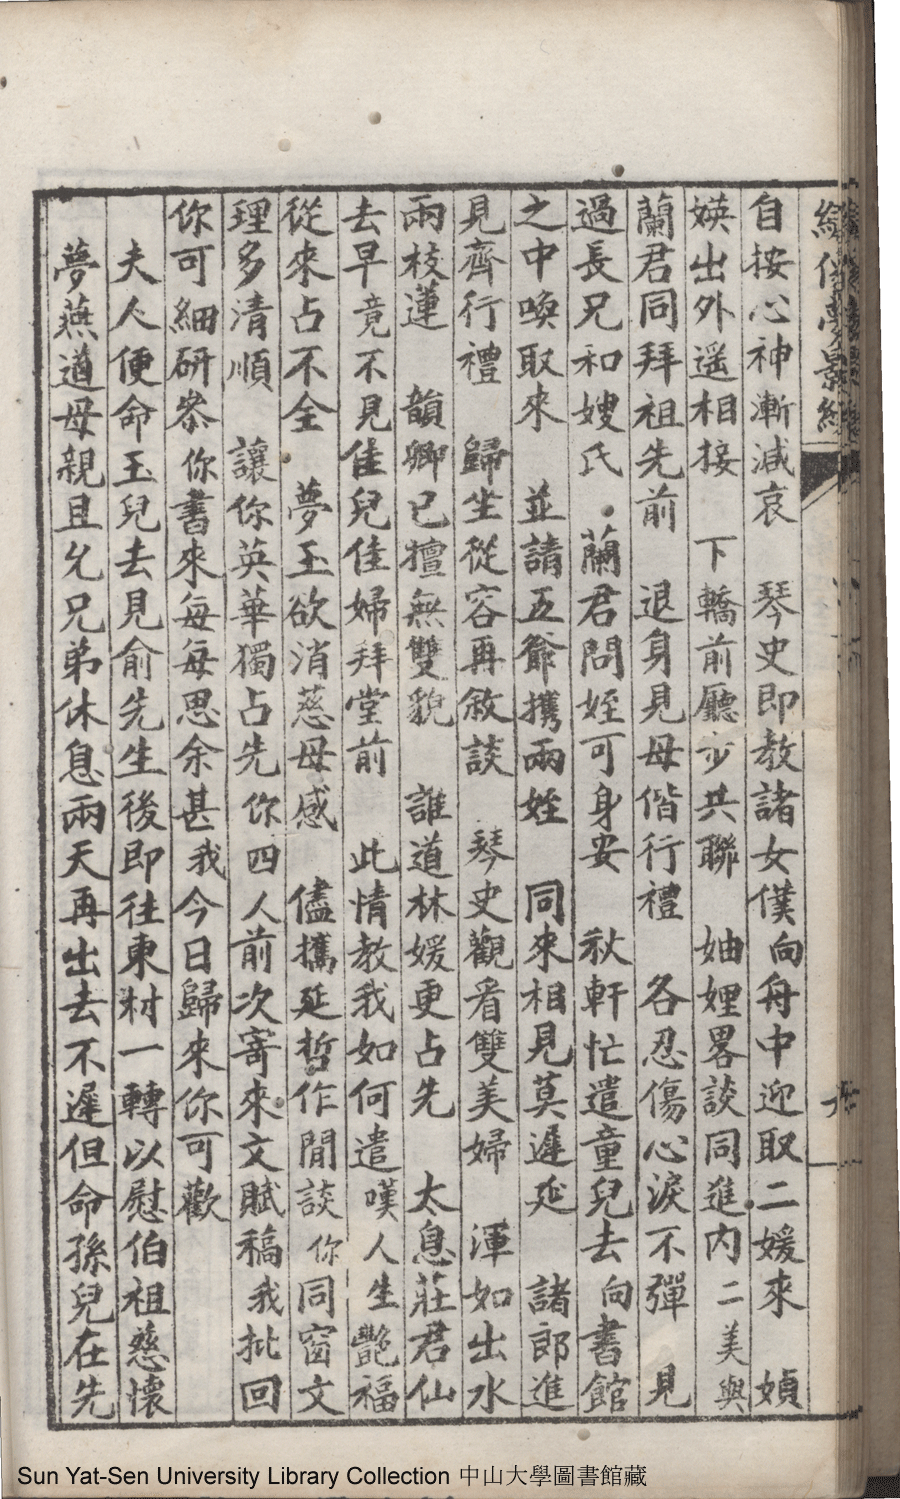 自按心神漸減哀　琴史即教諸女僕向舟中迎取二媛來　媜
媖出外遥相接　下轎前廳步共聯　妯娌畧談同進内二美與
蘭君同拜祖先前　退身見母偕行禮　各忍傷心淚不彈　見
過長兄和嫂氏　蘭君問姪可身安　秋軒忙遣童兒去向書館
之中喚取來　並請五爺攜兩姪　同來相見莫遲延　諸郎進
見齊行禮　歸坐從容再敘談　琴史觀看雙美婦　渾如出水
兩枝蓮　韻卿已擅無雙貌　誰道林媛更占先　太息莊君仙
去早竟不見佳兒佳婦拜堂前　此情教我如何遣嘆人生艷福
從來占不全　夢玉欲消慈母感　儘攜延哲作閒談你同窗文
理多清順　讓你英華獨占先你四人前次寄來文賦稿我批回
你可細研叅你書來每每思余甚我今日歸來你可歡
夫人便命玉兒去見俞先生後即往東村一轉以慰伯祖慈懷
夢燕道母親且允兄弟休息兩天再出去不遲但命孫兒在先
Sun Yat-Sen University Library Collection 中山大學圖書館藏